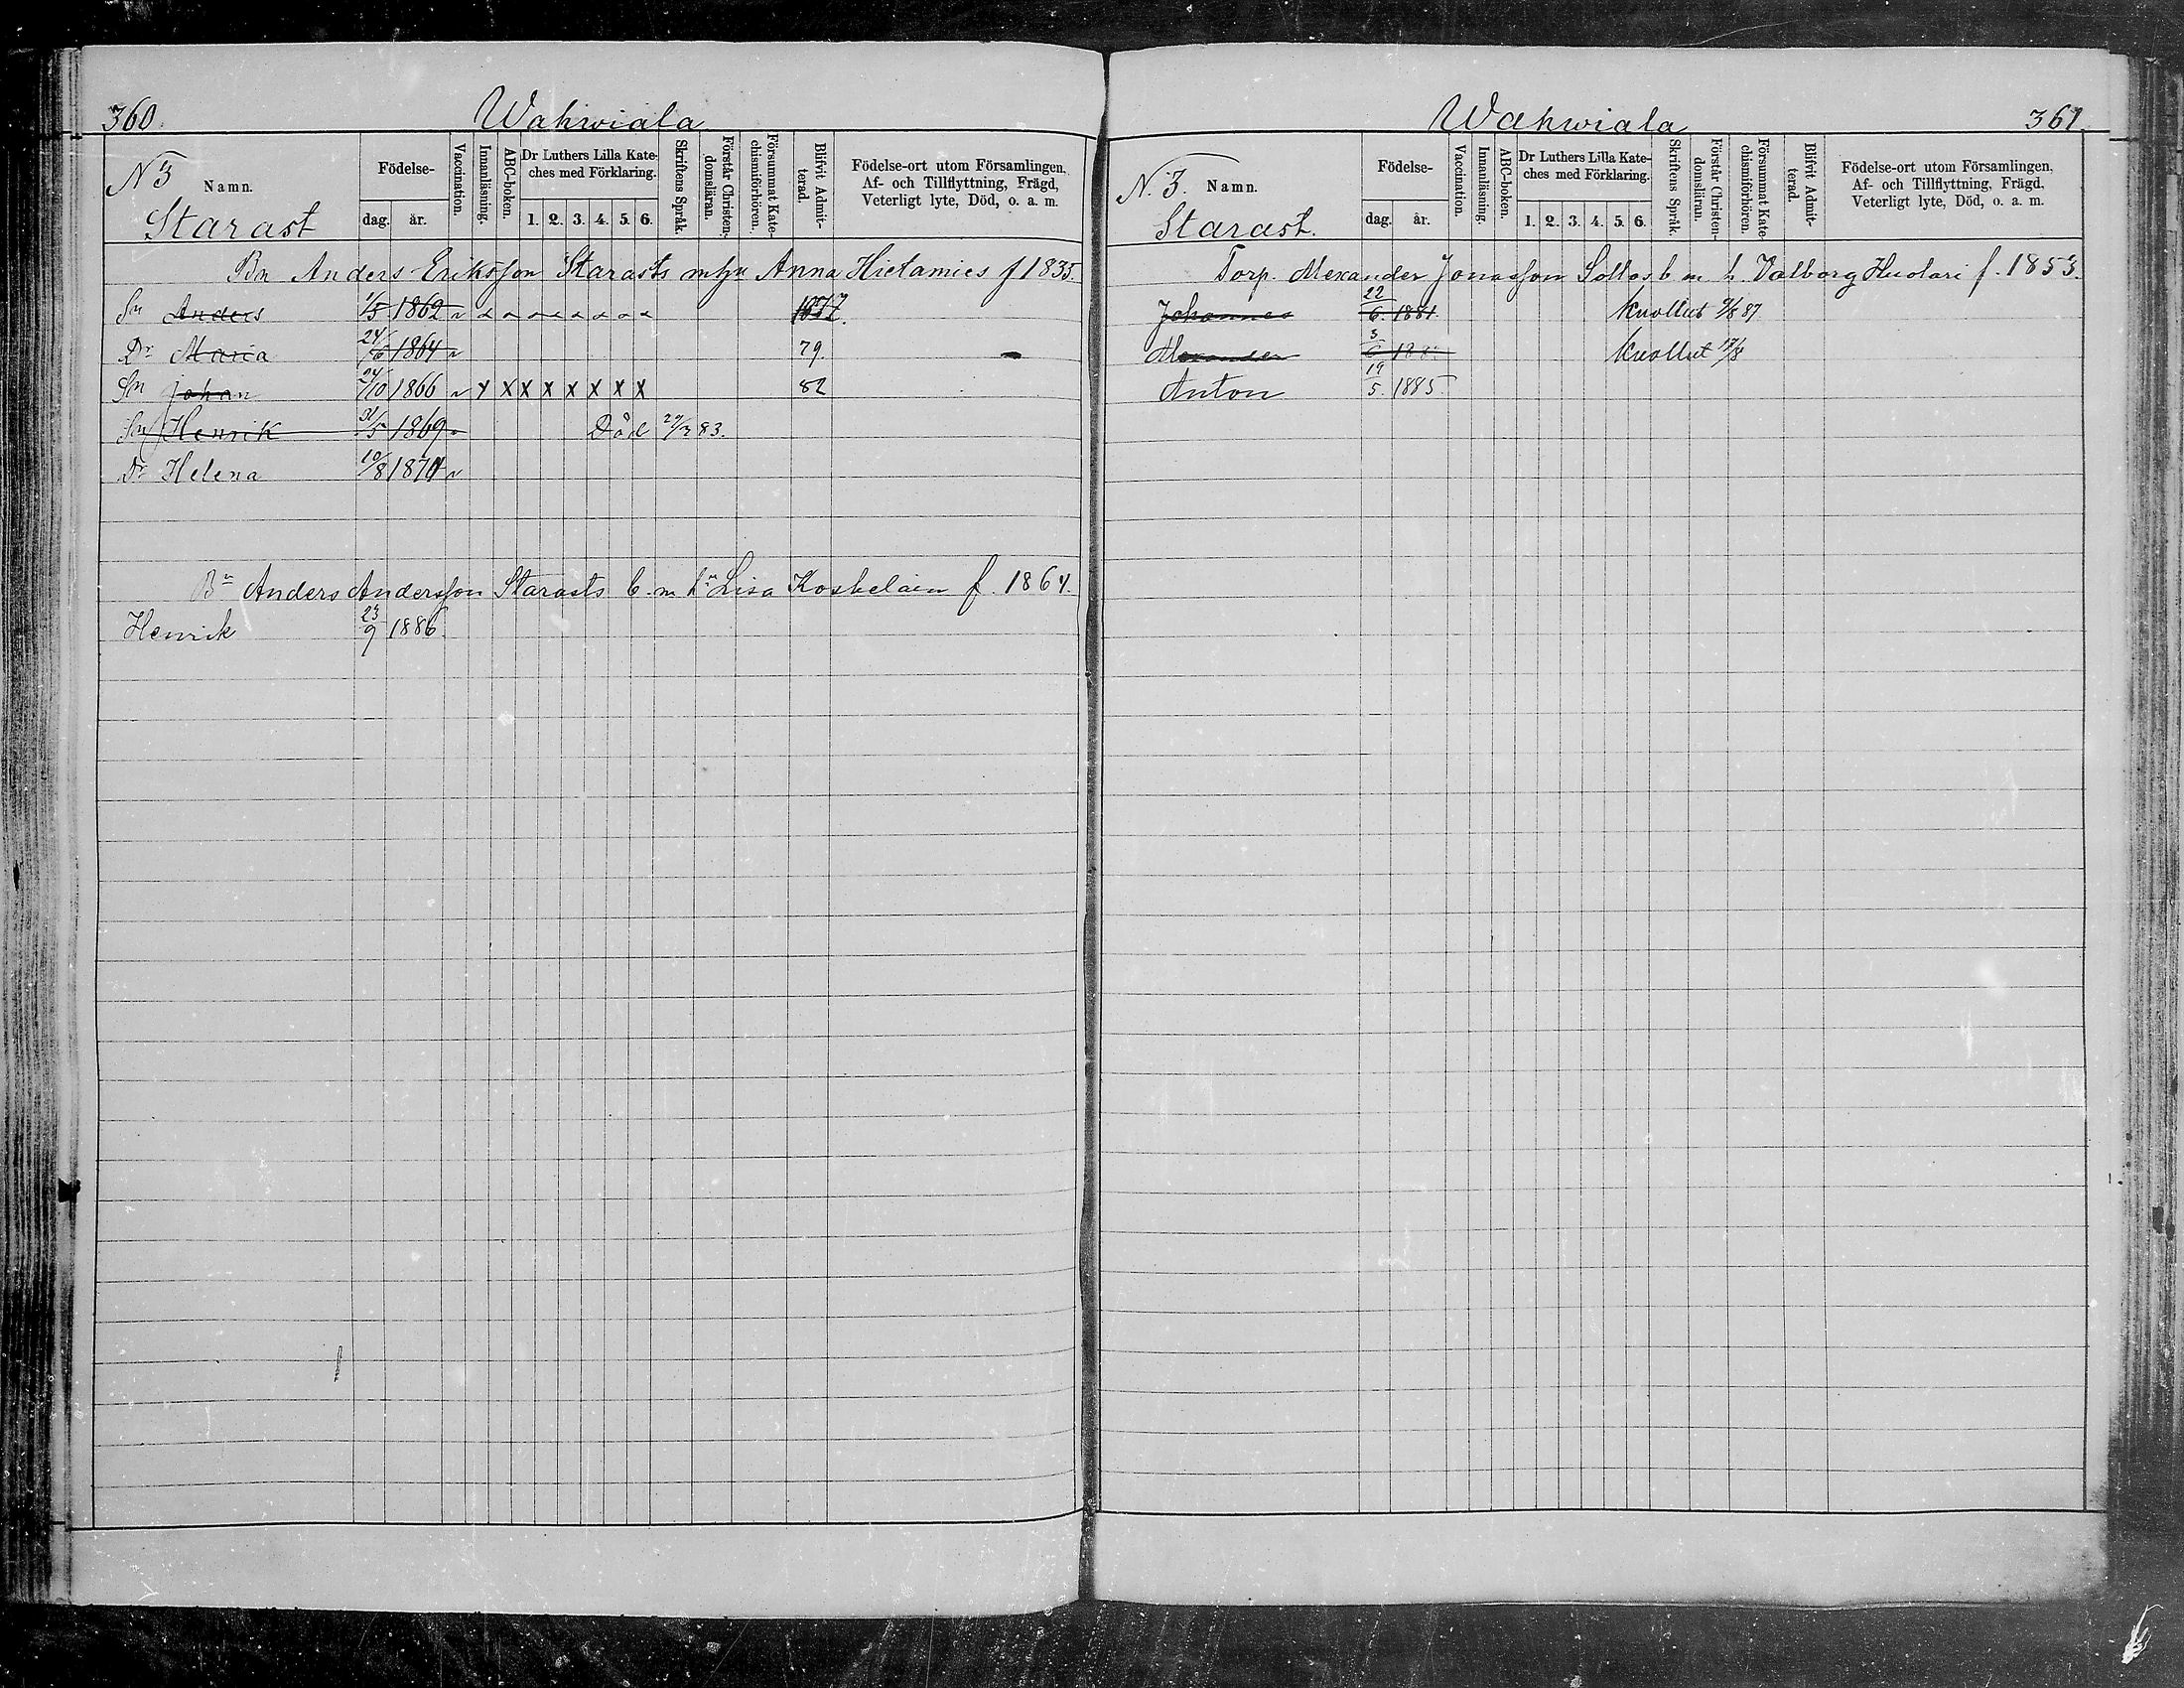 360.
Wahwiala
N 3 Namn.
Starast
Födelse-
dag. år.
Vaccination.
Innanläsning.
ABC-boken.
Dr Luthers Lilla Kate-
ches med Förklaring.
1. 2. 3. 4. 5. 6.
Skriftens Språk.
Förstår Christen-
domsläran.
Försummat Kate-
chismiförhören.
Blifvit Admit-
terad.
Födelse-ort utom Församlingen,
Af- och Tillflyttning, Frägd,
Veterligt lyte, Död, o. a. m.
Bn Anders Eriksson Starasts m hu Anna Hietamies f 1835.
Sn Anders 1/5 1862
Dr Maria 24/6 1864 79.
Sn Johan 24/10 1866 v y x x x x x x x 82
Sn Henrik 31/5 1869 Död 83.
Dr Helena 10/8 1871
Bn Anders Andersson Starasts b. m. hu Lisa Koskelain f. 1864.
Henrik 23/9 1886.
Wahwiala
361.
N. 3. Namn.
Starast.
Födelse-
dag. år.
Vaccination.
Innanläsning.
ABC-boken.
Dr Luthers Lilla Kate-
ches med Förklaring.
1. 2. 3. 4. 5. 6.
Skriftens Språk.
Förstår Christen-
domsläran.
Försummat Kate-
chismiförhören.
Blifvit Admit-
terad.
Födelse-ort utom Församlingen,
Af- och Tillflyttning, Frägd,
Veterligt lyte, Död, o. a. m.
Torp. Alexander Jonasson b. m. h. Valborg Huolari f. 1853.
Johannes 22/6. 1881. Kuollut 87
Alexander Kuollut
Anton 19/5. 1885.